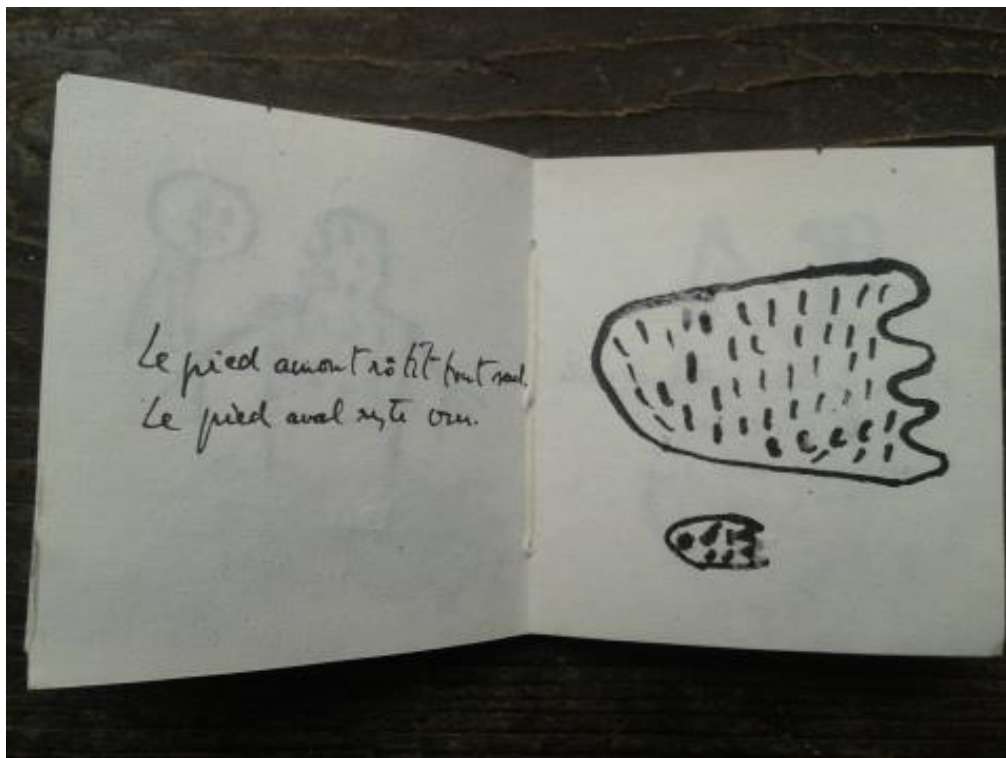 Le pied amont rôtit tout seul.
Le pied aval reste cru.